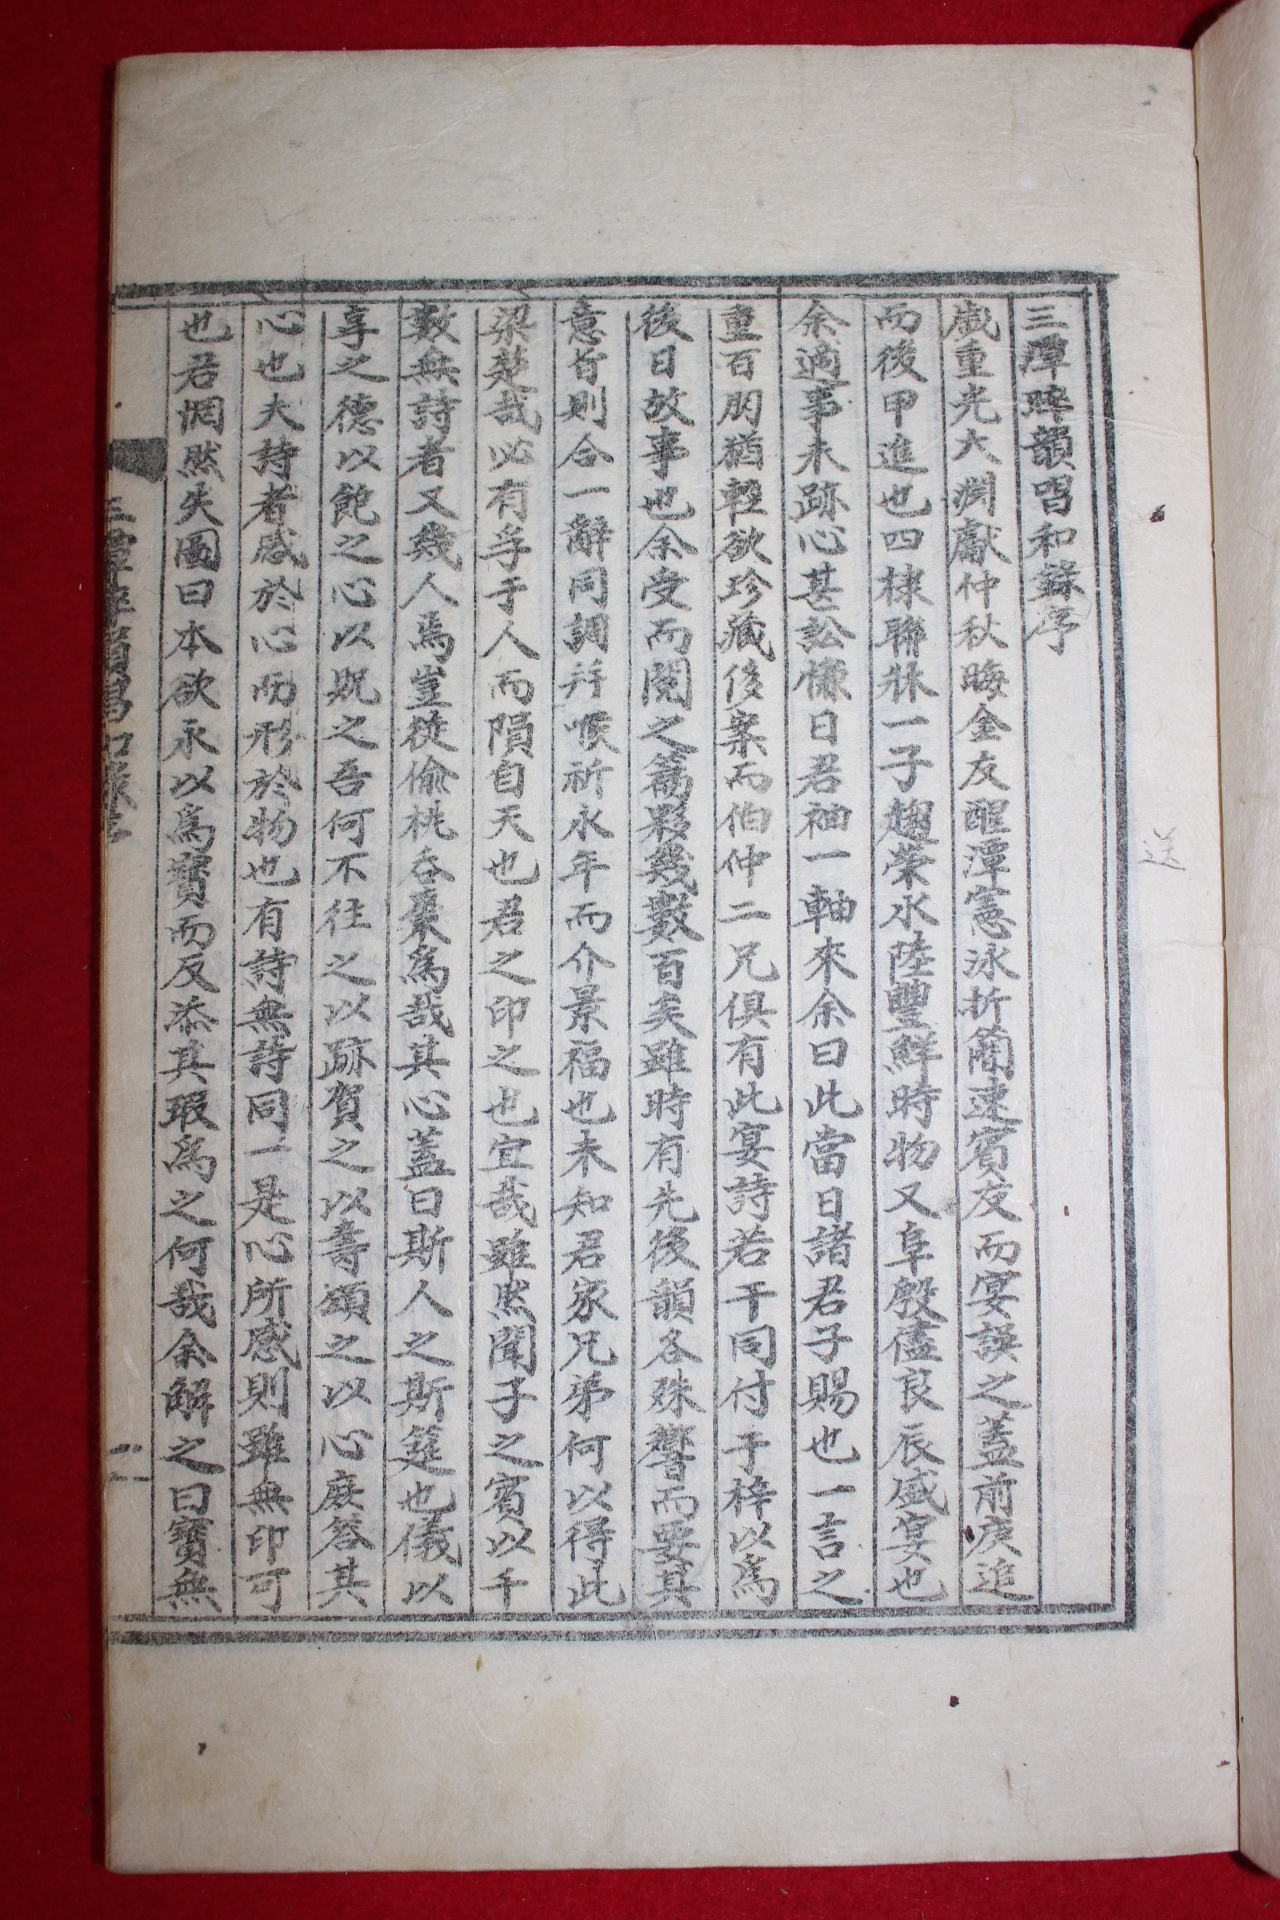 三潭晬韻唱和錄序
歲重光大淵獻仲秋晦金友醒潭憲泳折簡速賓友而宴誤之蓋前庚追
而後甲進也四棣聯牀一子趨榮水陸豐鮮時物又阜殷儘良辰盛宴也
余適事未跡心甚訟慊日君袖一軸來余曰此當日諸君子賜也一言之
重百朋猶輕欲珍藏侈案而伯仲二兄俱有此宴詩若干同付于梓以爲
後日故事也余受而閱之篇夥幾數百矣雖時有先後韻各殊響而要其
意旨則合一辭同調幷喉祈永年而介景福也未知君家兄弟何以得此
梁楚哉必有孚于人而隕自天也君之印之也宜哉雖然聞子之賓以千
數無詩者又幾人焉豈從偷桃呑棗爲哉其心蓋曰斯人之斯筵也儀以
享之德以飽之心以貺之吾何不往之以跡賀之以壽頌之以心庶答其
心也夫詩者感於心而形於物也有詩無詩同一是心所感則雖無印可
也君惘然失圖曰本欲永以爲寶而反添其瑕爲之何哉余解之曰寶無
三潭晬韻唱和錄序
二
送